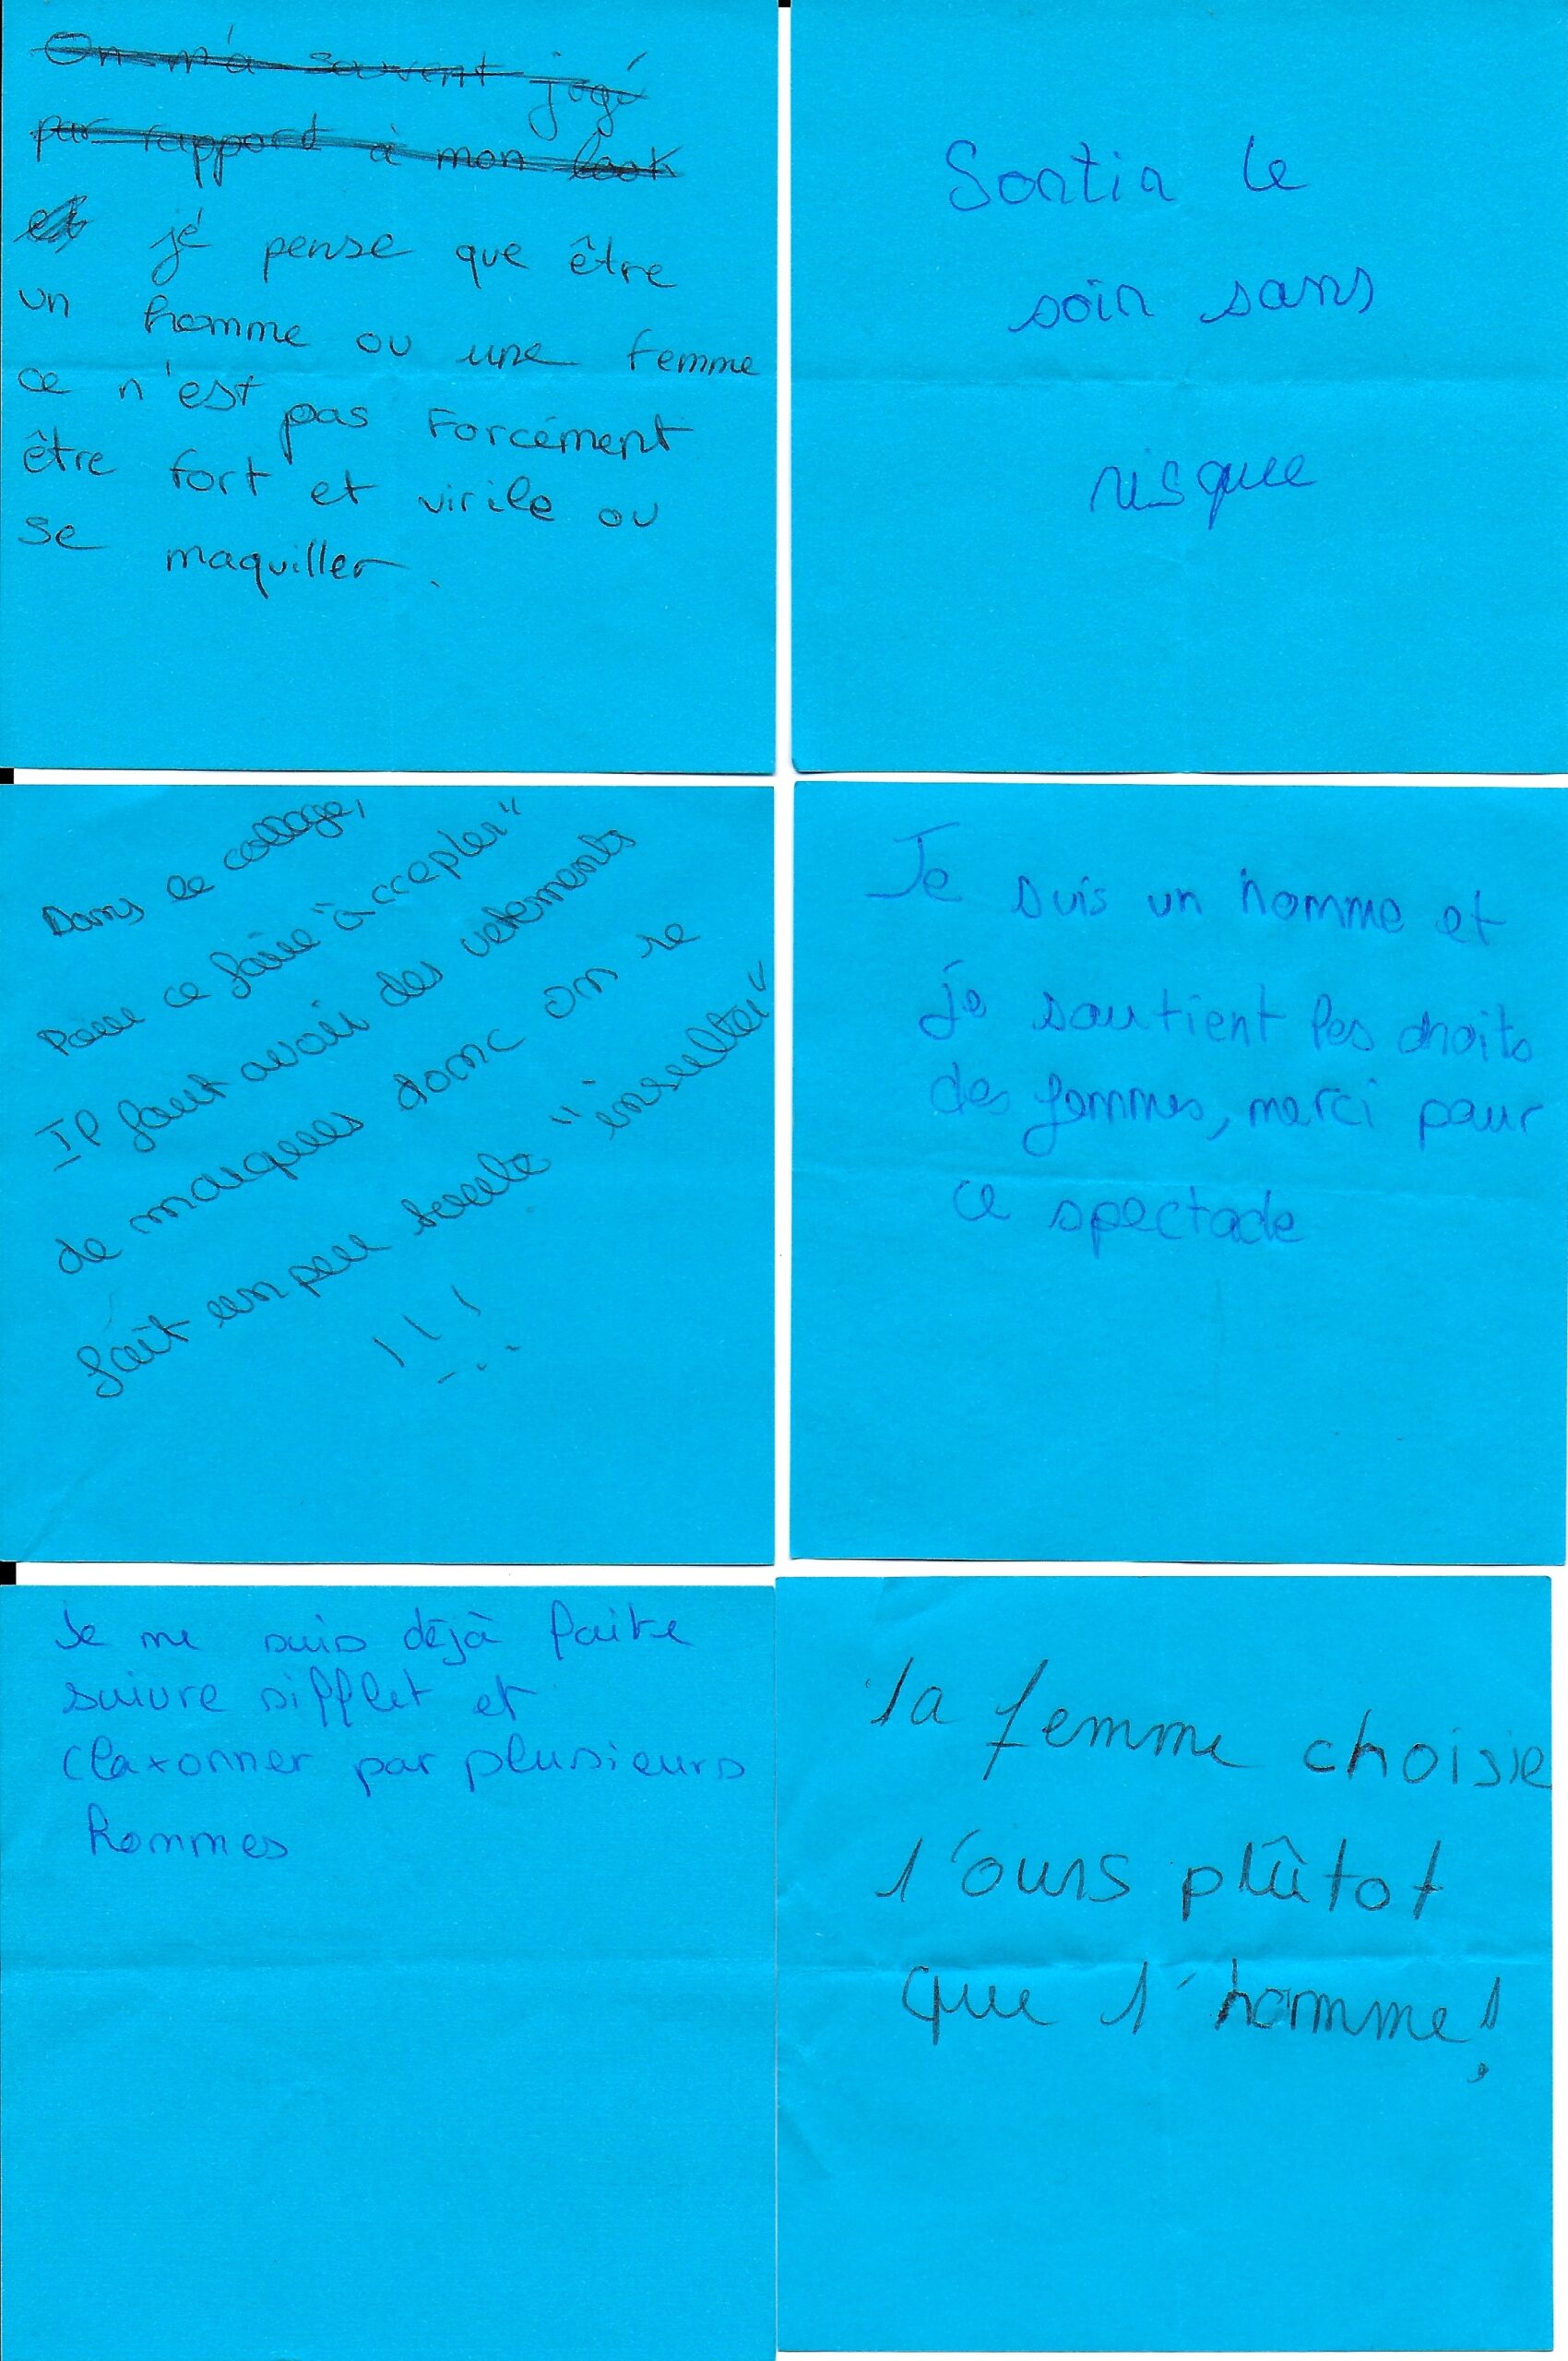 On m'a souvent jugé
par rapport à mon look
et je pense que être
un homme ou une femme
ce n'est pas Forcément
être fort et virile ou
se maquiller.
Sortir le
soir sans
risque
Dans le collage,
Pour ce faire "accepter"
Il faut avoir des vetements
de marques donc on se
fait un peu toute "insulter"
!!!
Je suis un homme et
je soutient les droits
des femmes, merci pour
ce spectacle
Je me suis déjà faite
suivre sifflet et
claxonner par plusieurs
hommes
la femme choisie
l'ours plûtot
que l'homme!